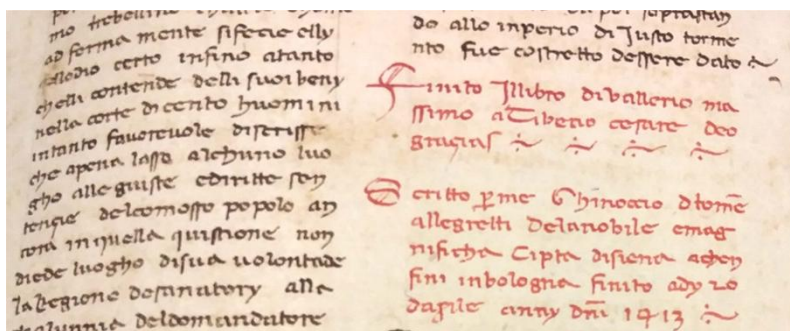 mo trebellino
ad ferma mente sifecie elly
allodio certo infino atanto
chelli contende delli suoi beny
nella corte di cento huomini
intanto favorevole discrisse
che apena lasso alchuno luo
gho alle giuste ediritte sen
tencie delcomosso popolo an
cora in quella quistione non
diede luogho disua volontade
la legione desenatory alla
chalunnia deldomandatore
do allo inperio di Justo torme
nto fue costretto dessere dato
Finito Jllibro divallerio ma
ssimo aTiberio cesare deo
gracias
Scritto p me Ghinoccio dtome
allegretti Delanobile emag
nificha Cipta disiena achon
fini inbologna finito ady 20
daprile anny dni 1413